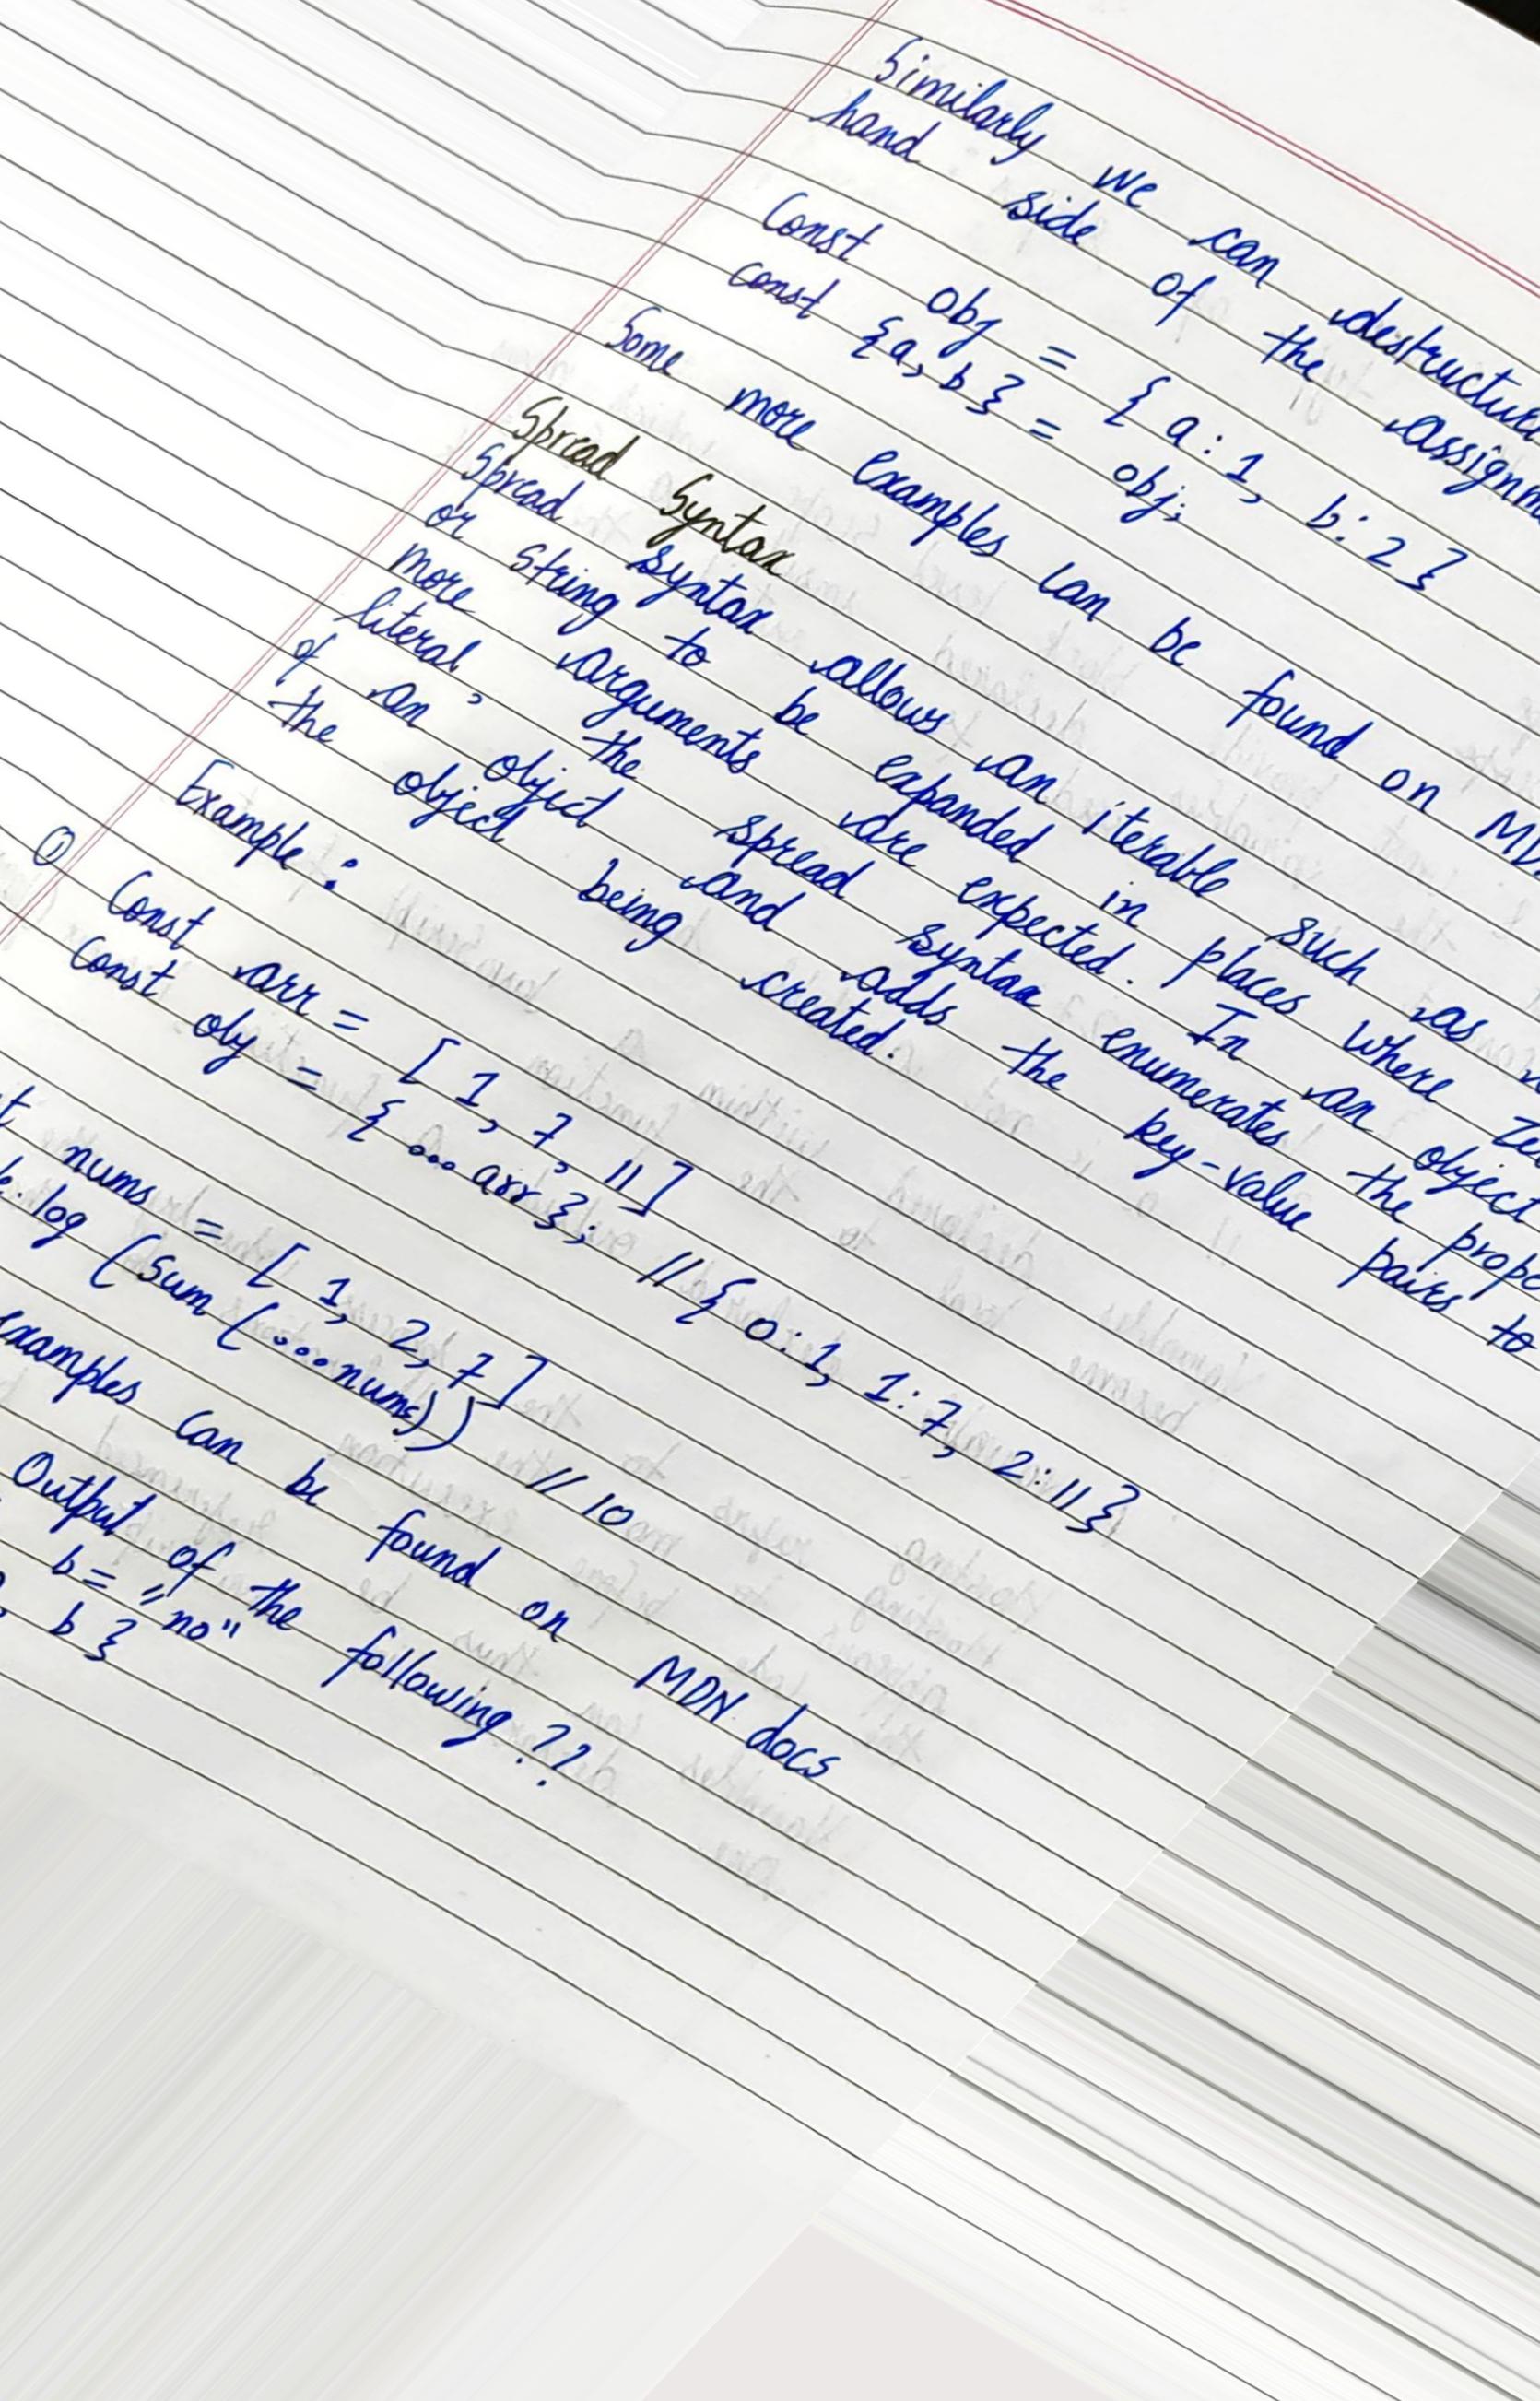 Similarly we can
hand side of the
Const obj = { a: 1, b: 2 }
const {a, b} = obj;
Some more examples can be found on
Spread Syntax
Spread syntax allows an iterable such as
or string to be expanded in places where
more arguments are expected. In an object
literal, the spread syntax enumerates the
of an object and adds the key-value pairs to
the object being created.
Example :
① Const arr = [ 1, 7, 11 ]
Const obj = { ...arr }; // { 0:1, 1:7, 2:11 }
nums = [ 1, 2, 7 ]
log (sum (...nums)) // 10
examples can be found on MDN docs
Output of the following ??
b = "no"
b }